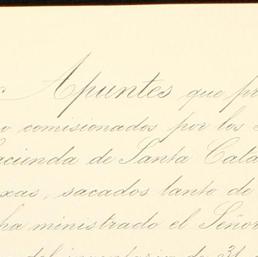 Apuntes que p
o comisionados por los
acienda de Santa Cata
xas, sacados tanto de
ha ministrado el Señor
del inventario de 31